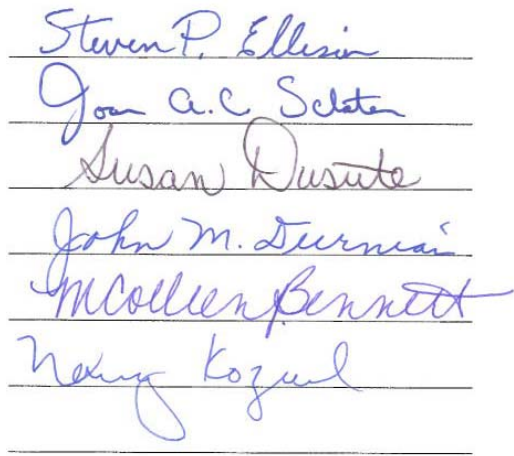 Steven P. Ellison
Joan A.C. Sclater
Susan Dusute
John M. Durnian
MColleen Bennett
Nancy Koziul